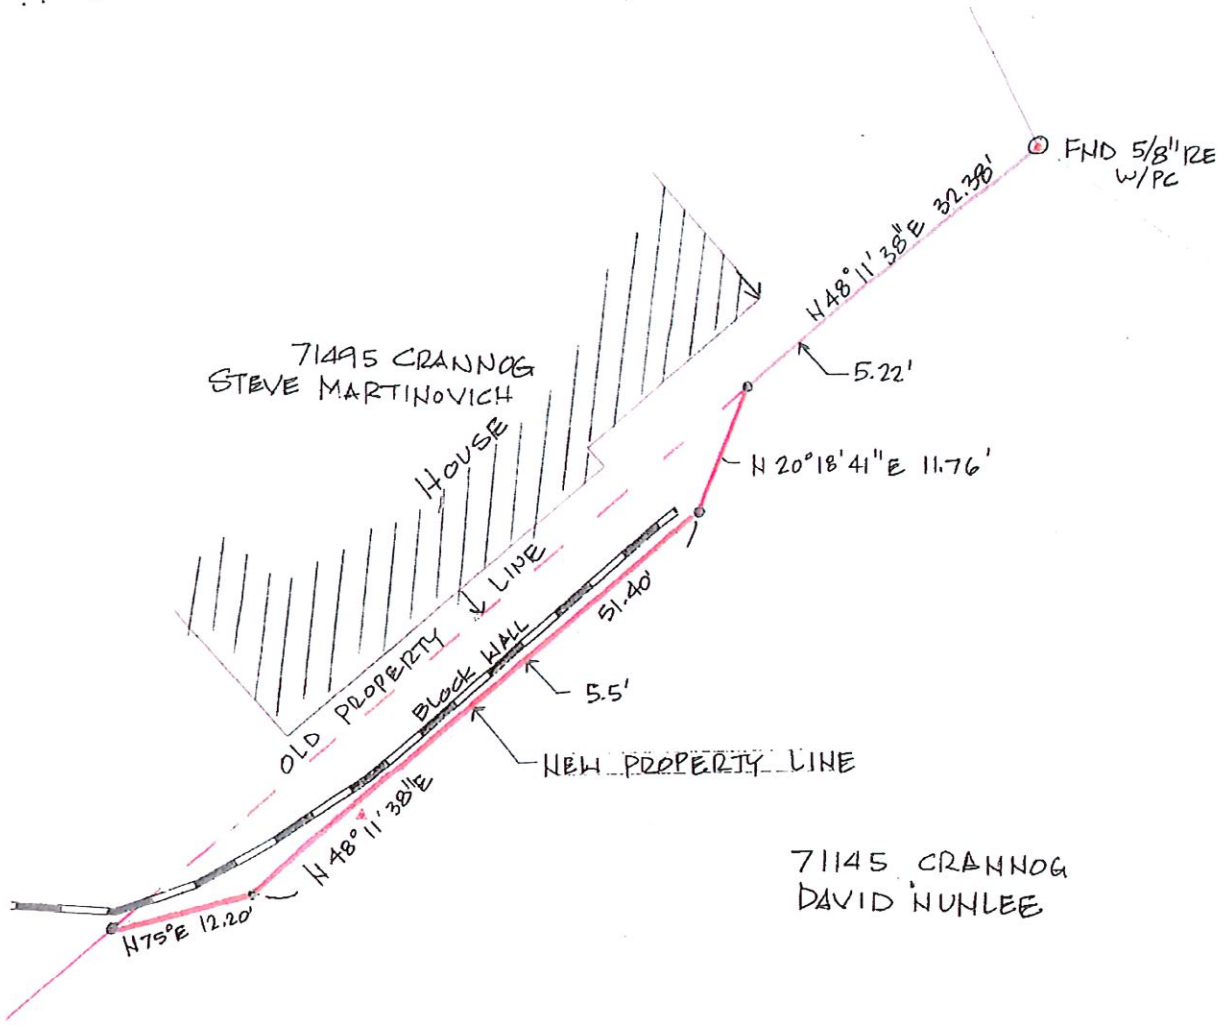 FND 5/8" RE
W/PC
N 48° 11' 38" E 32.38'
5.22'
71495 CRANNOG
STEVE MARTINOVICH
HOUSE
N 20° 18' 41" E 11.76'
OLD PROPERTY LINE
51.40'
BLOCK WALL
5.5'
NEW PROPERTY LINE
N 48° 11' 38" E
71145 CRANNOG
DAVID NUNLEE
N 75° E 12.20'